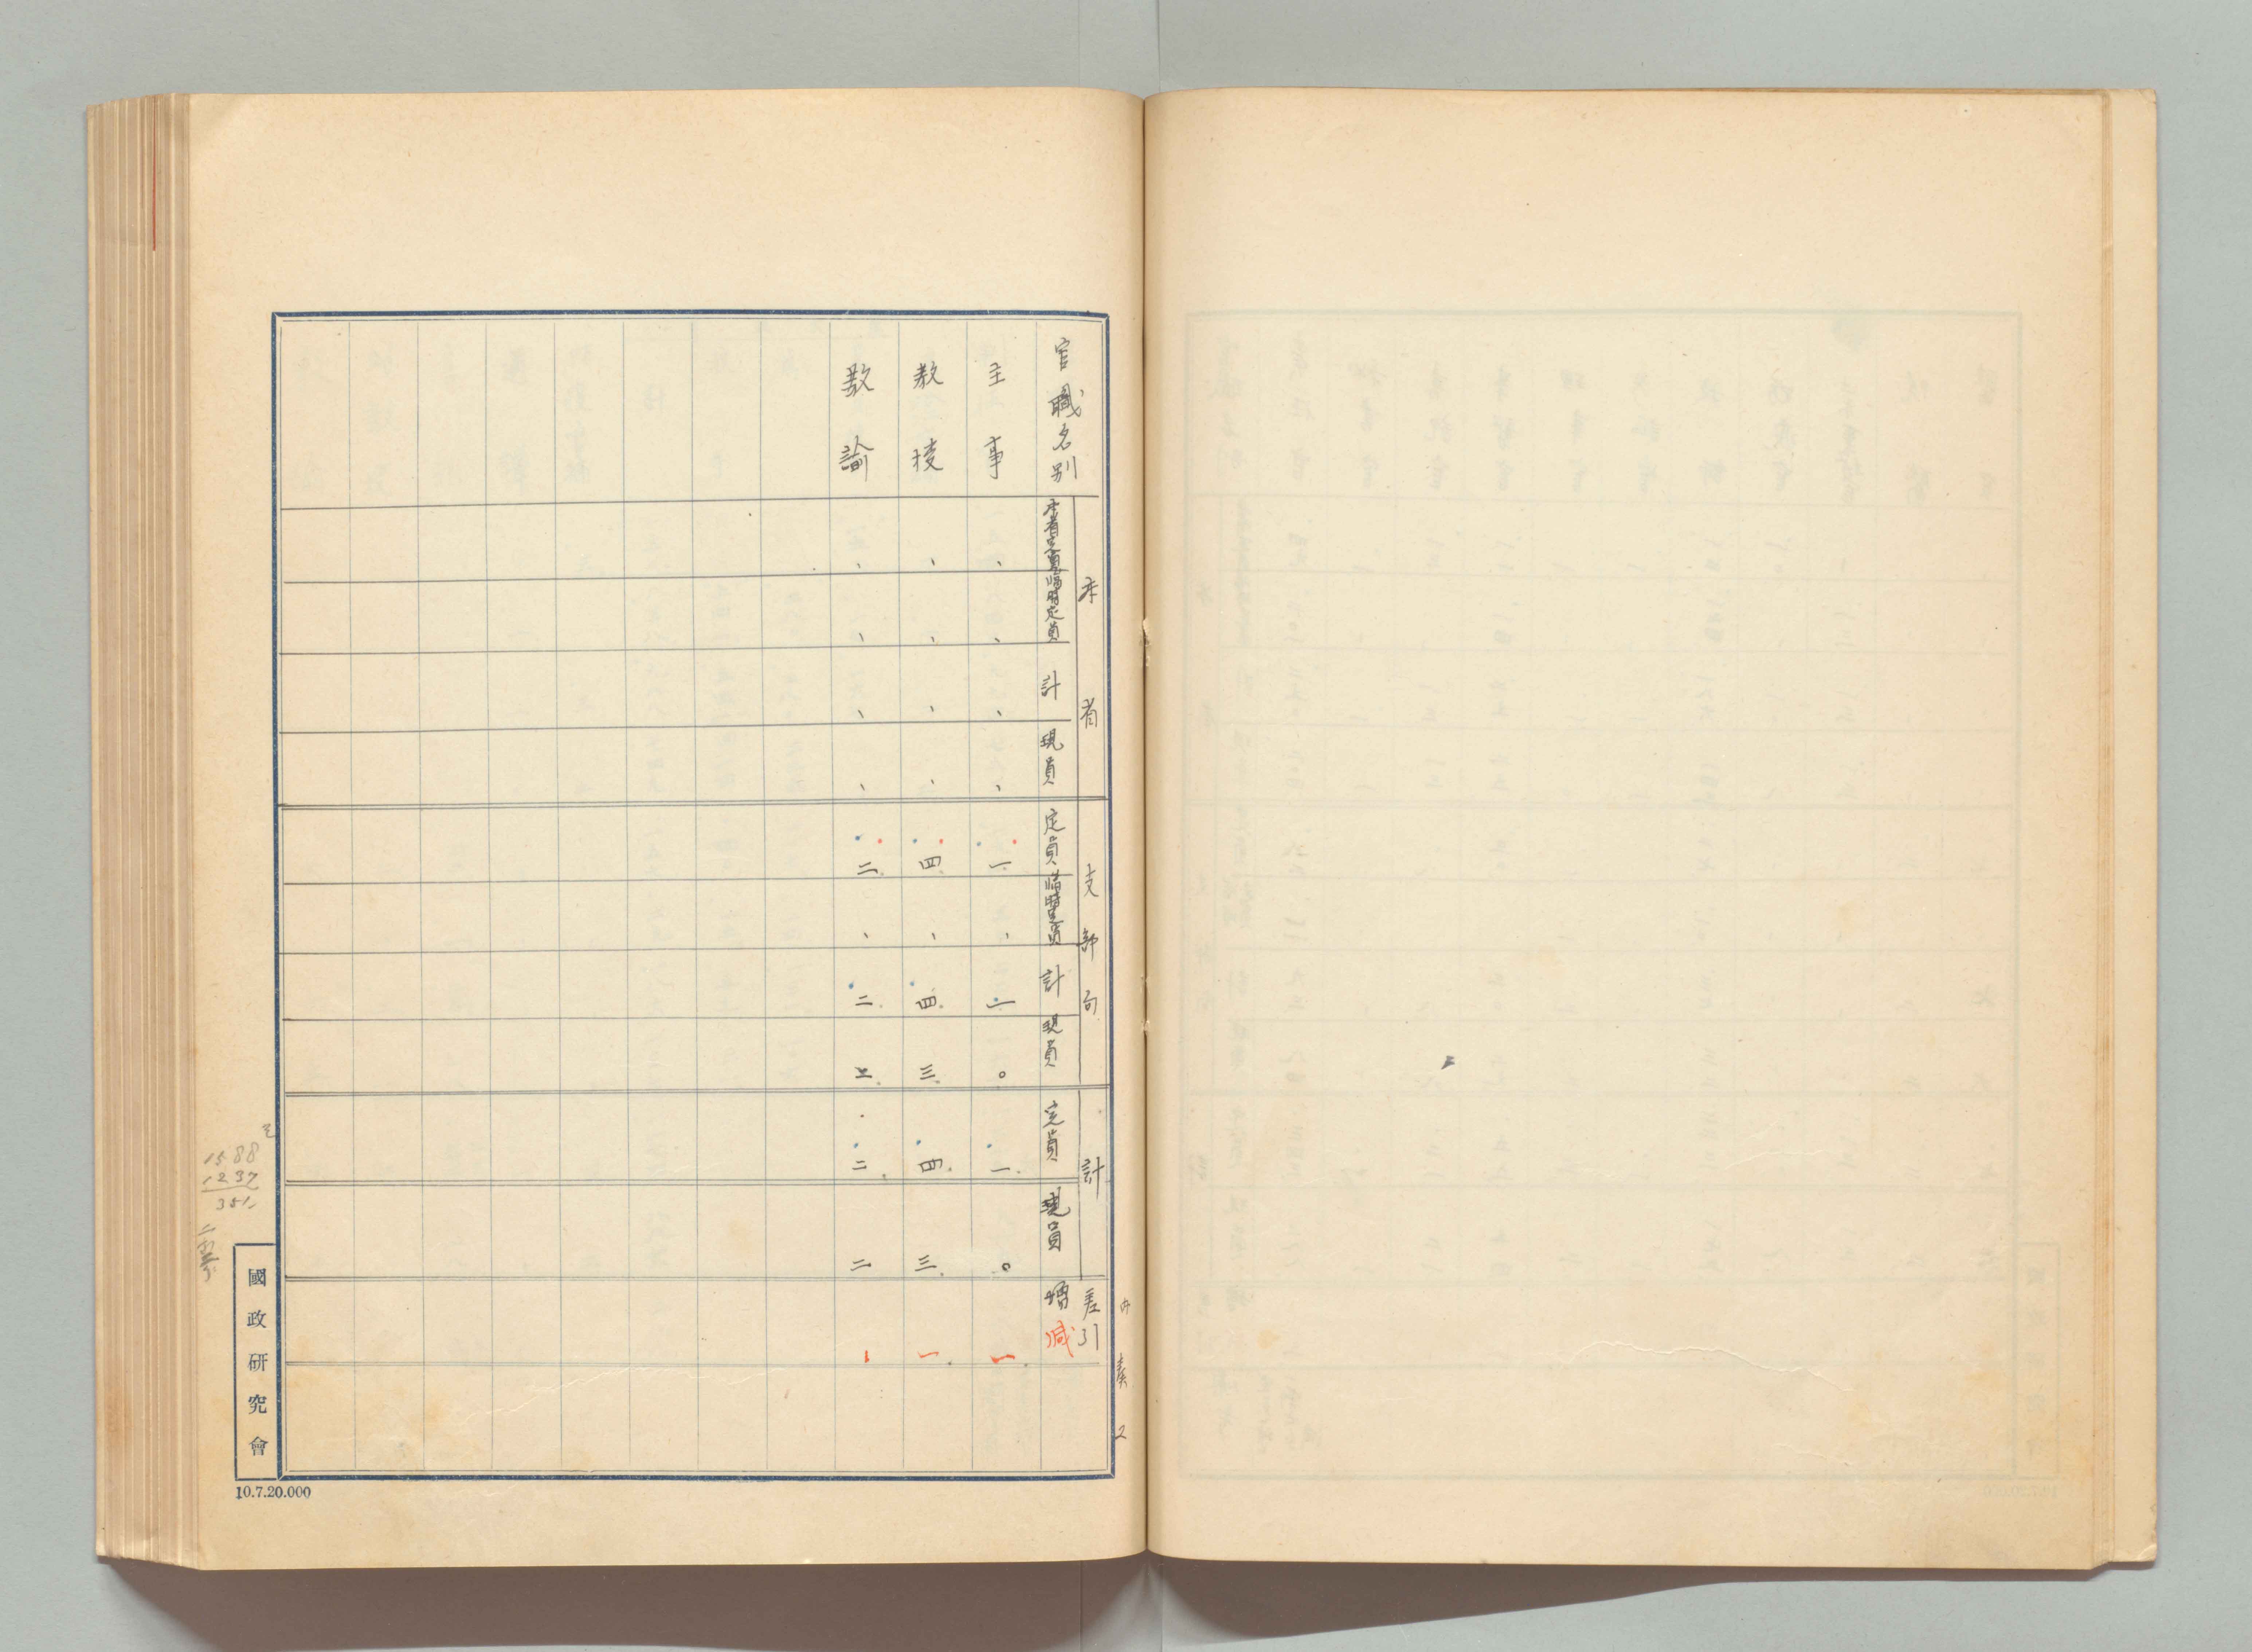 官職名別
本省
本省定員
臨時定員
計
現員
支部局
定員
臨時定員
計
現員
計
定員
現員
差引
増減
主事 、 、 、 、 一 、 一 〇 一 〇 一
教授 、 、 、 、 四 、 四 三 四 三 一
教諭 、 、 、 、 二 、 二 二 二 二 、
2
1588
1237
351
國政研究會
10.7.20.000